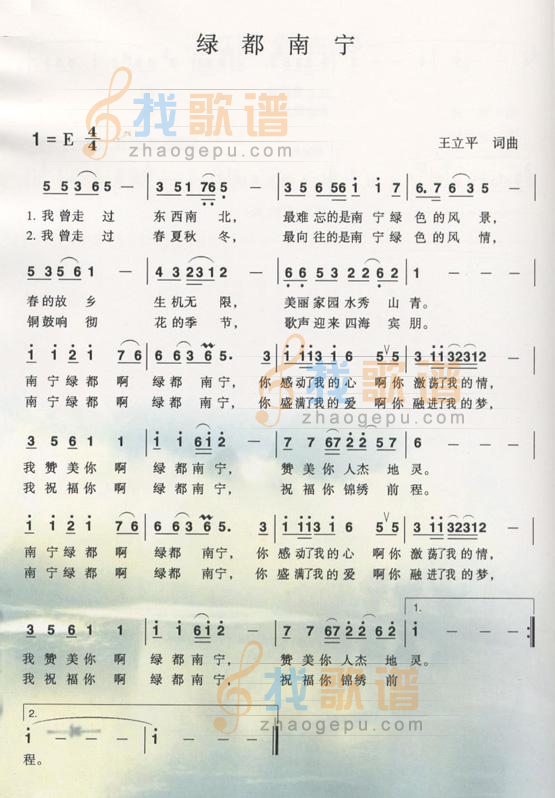 绿都南宁
找歌谱
zhaogepu.com
1=E 4/4
王立平 词曲
5 5 3 6 5 — | 3 5 1 7 6 5 — | 3 5 6 5 6 1 1 7 | 6. 7 6 3 5 —
1.我曾走过 东西南北, 最难忘的是南宁绿色的风景,
2.我曾走过 春夏秋冬, 最向往的是南宁绿色的风情,
5 3 5 6 1 — | 4 3 2 3 1 2 — | 6 6 5 3 2 2 6 2 | 1 — — —
春的故乡 生机无限, 美丽家园水秀山青。
铜鼓响彻 花的季节, 歌声迎来四海宾朋。
1 1 2 1 7 6 | 6 6 3 6 5. 3 | 1 1 1 3 1 6 5 5 | 3 1 1 3 2 3 1 2 —
南宁绿都啊 绿都南宁, 你感动了我的心啊你激荡了我的情,
南宁绿都啊 绿都南宁, 你盛满了我的爱啊你融进了我的梦,
找歌谱
zhaogepu.com
3 5 6 1 1 | 1 1 6 1 2 — | 7 7 6 7 2 2 5 7 | 6 — — —
我赞美你啊 绿都南宁, 赞美你人杰地灵。
我祝福你啊 绿都南宁, 祝福你锦绣前程。
1 1 2 1 7 6 | 6 6 3 6 5. 3 | 1 1 1 3 1 6 5 5 | 3 1 1 3 2 3 1 2 —
南宁绿都啊 绿都南宁, 你感动了我的心啊你激荡了我的情,
南宁绿都啊 绿都南宁, 你盛满了我的爱啊你融进了我的梦,
1.
3 5 6 1 1 | 1 1 6 1 2 — | 7 7 6 7 2 2 6 2 | 1 — — — :|
我赞美你啊 绿都南宁, 赞美你人杰地灵。
我祝福你啊 绿都南宁, 祝福你锦绣前
找歌谱
zhaogepu.com
2.
1 — — — | 1 — — — ‖
程。